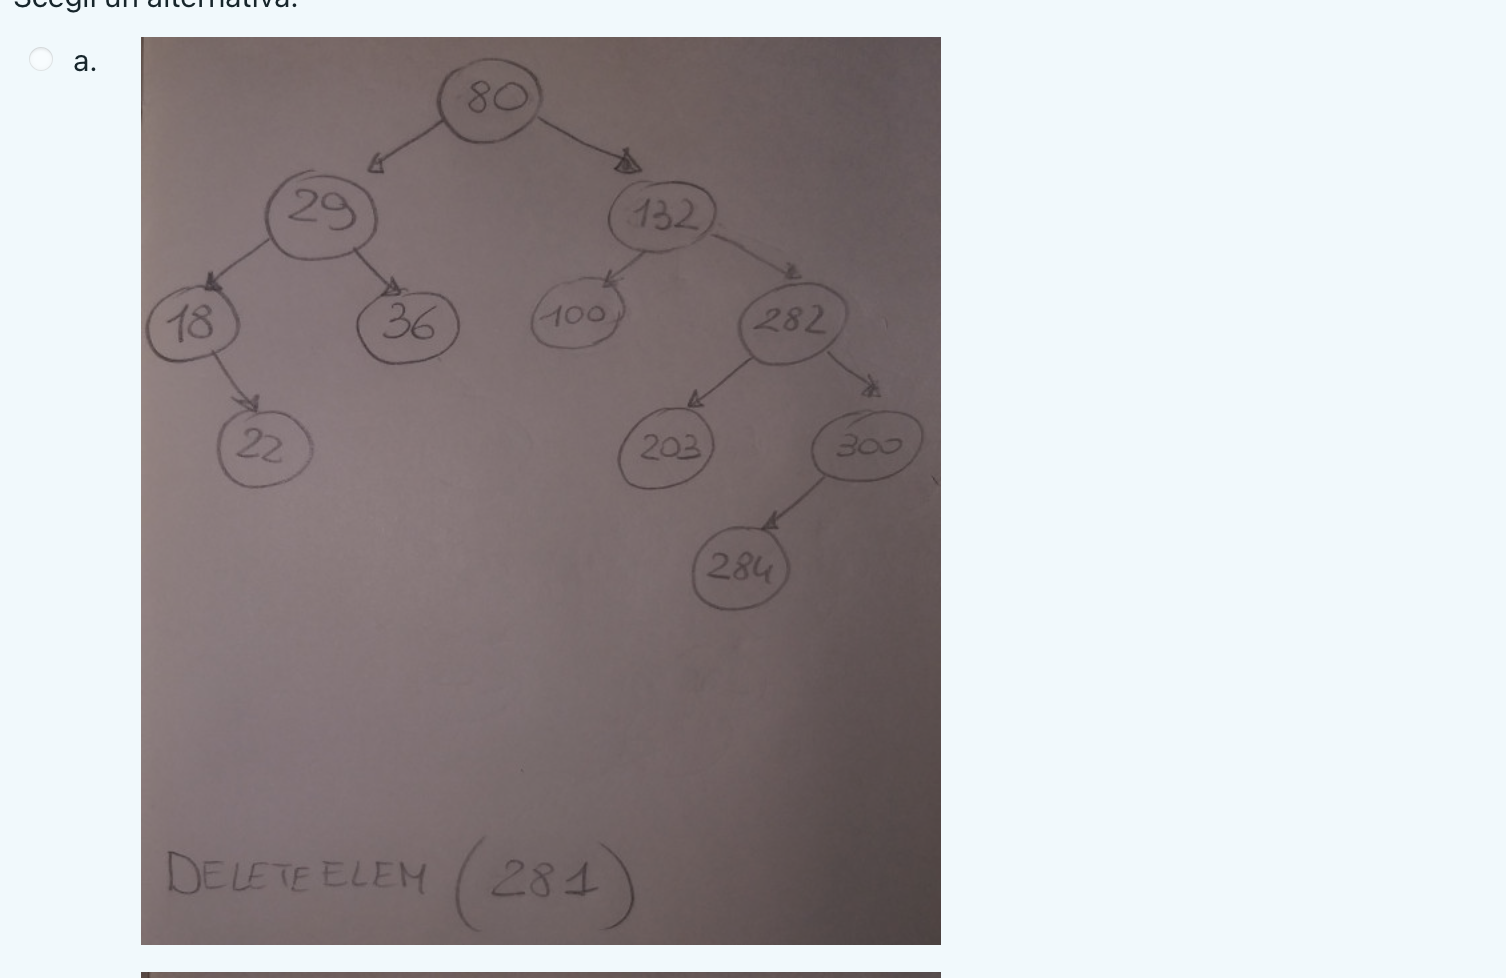 Scegli un'alternativa:
a.
80
29
132
18
36
100
282
22
203
300
284
DELETEELEM (281)